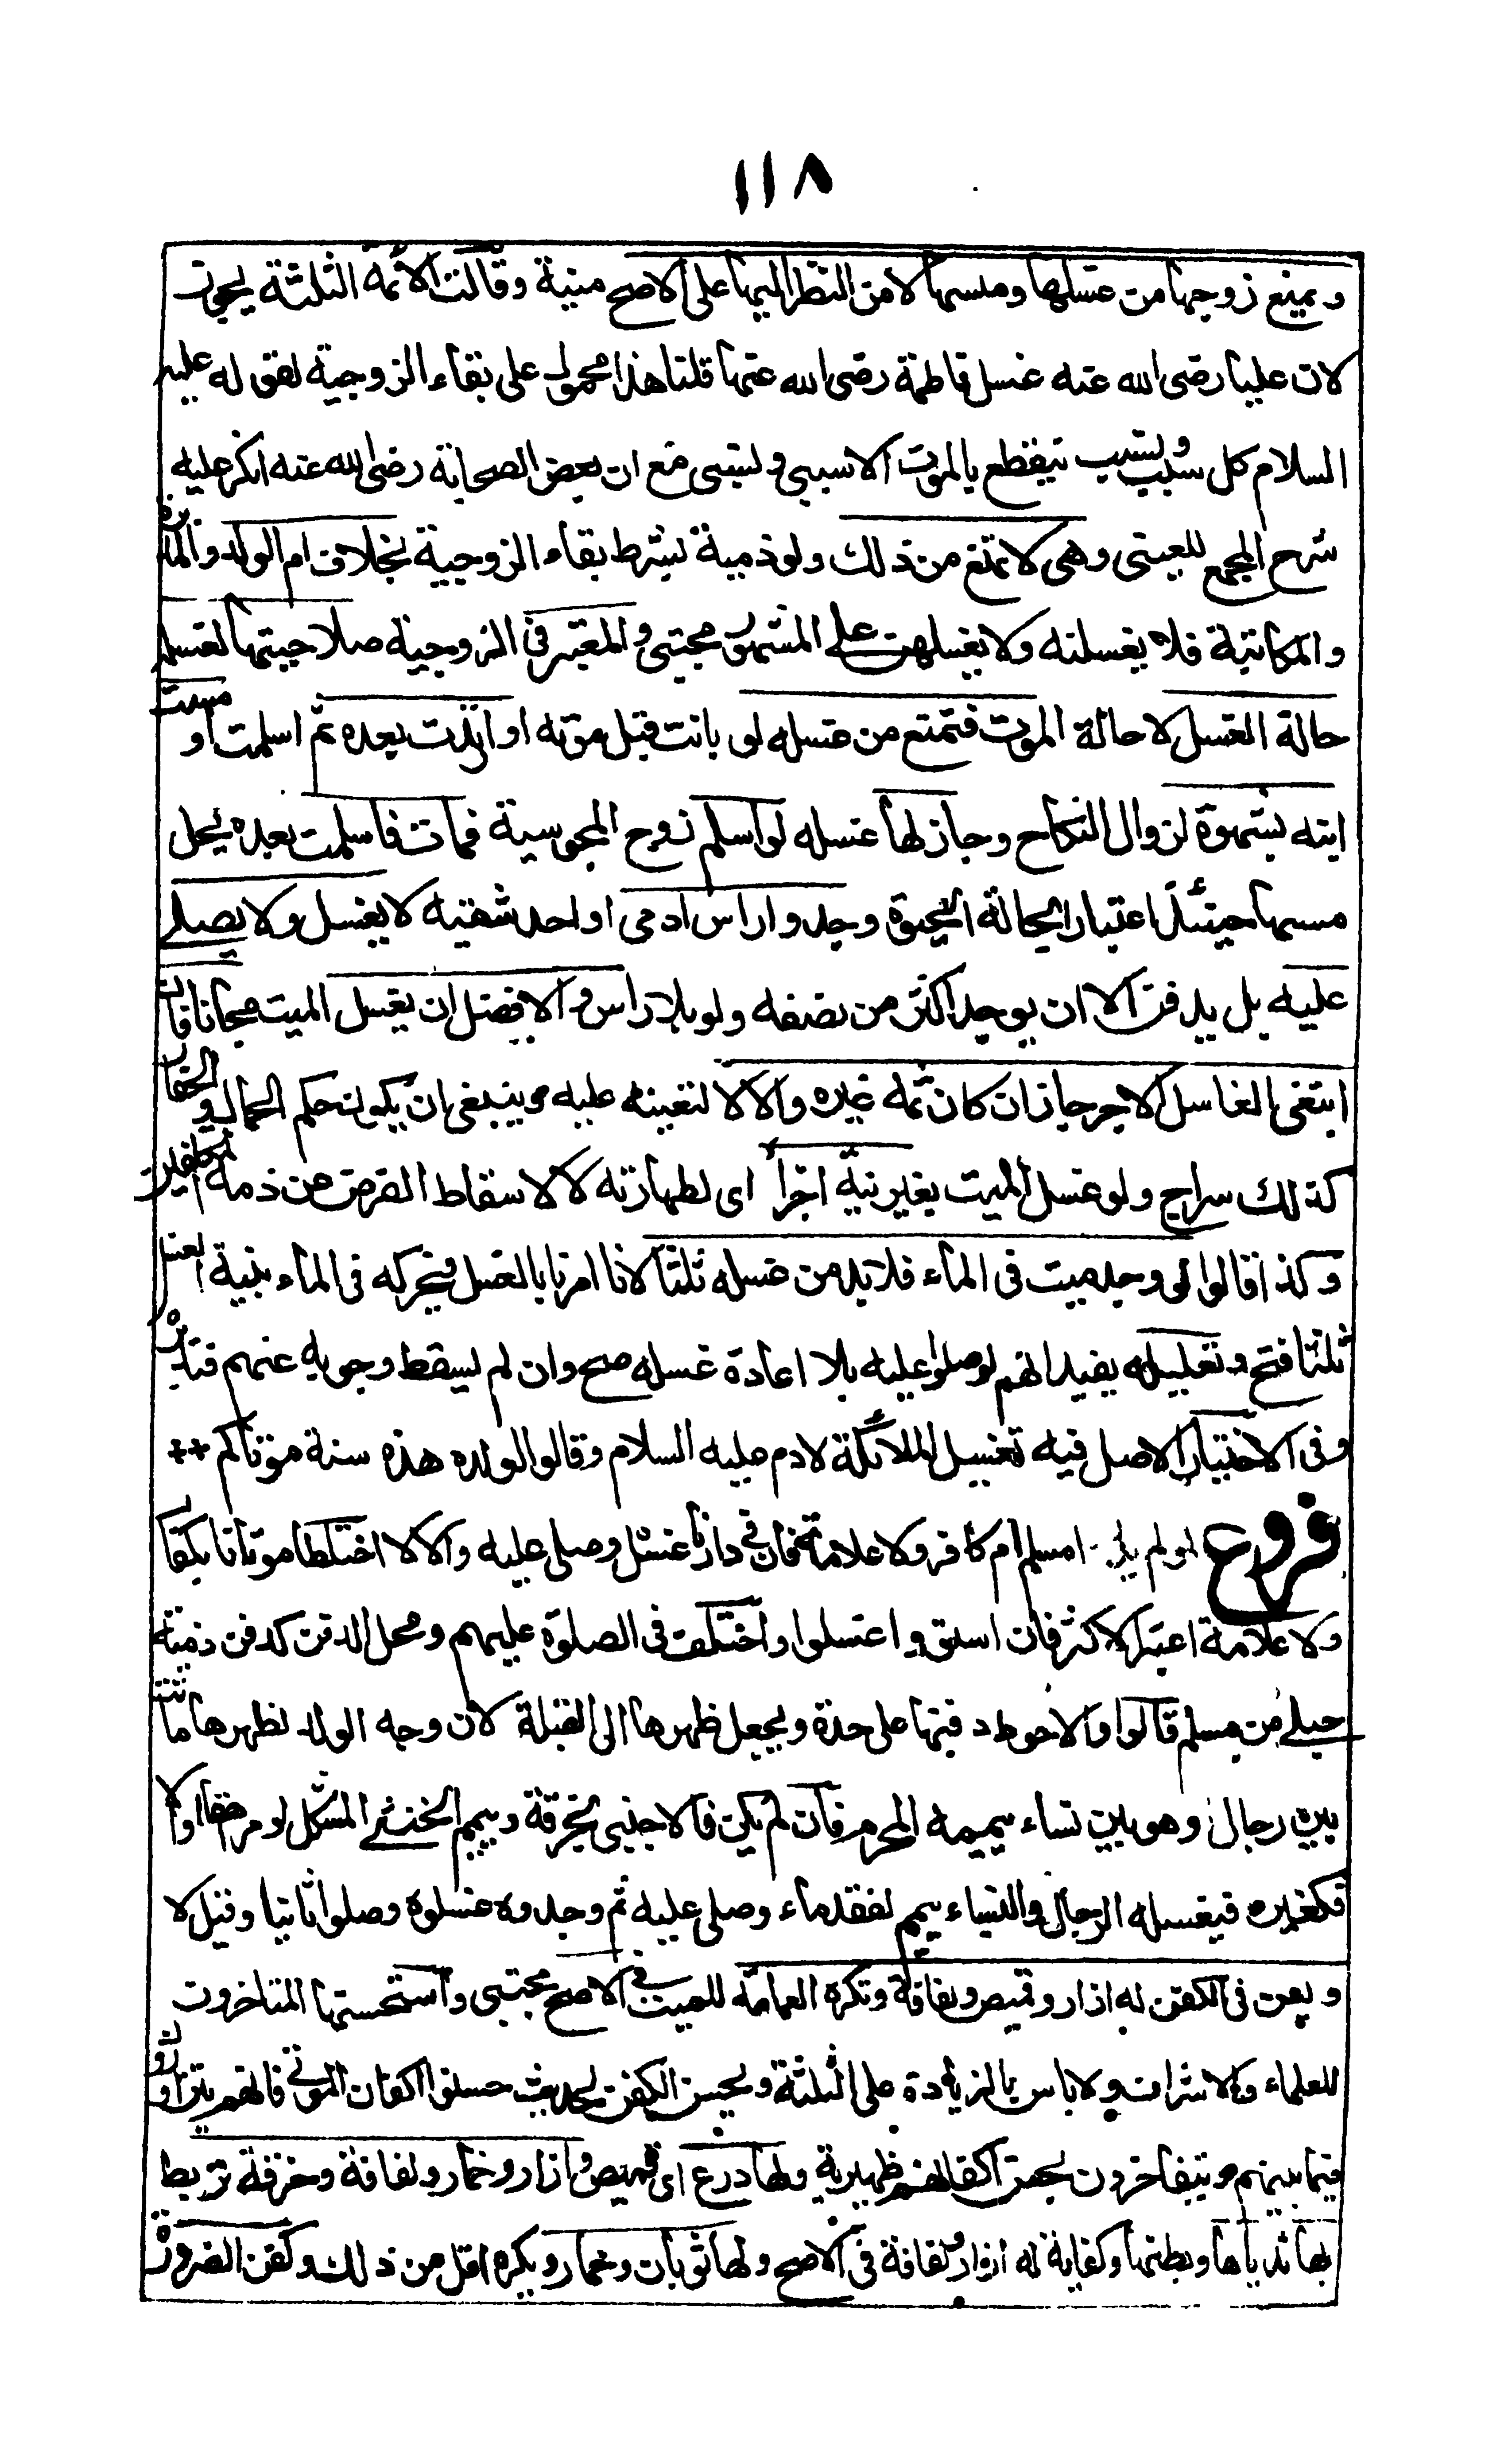 ١١٨
ويمنع زوجها من غسلها ومسها لا من النظر اليها على الاصح منية وقالت الائمة الثلثة يجوز
لان عليا رضى الله عنه غسل فاطمة رضى الله عنها قلنا هذا محمول على بقاء الزوجية لقوله عليه
السلام كل سبب ونسب ينقطع بالموت الا سببى ونسبى مع ان بعض الصحابة رضى الله عنه انكر عليه
شرح المجمع للعينى وهى لا تمنع من ذلك ولو ذمية بشرط بقاء الزوجية بخلاف ام الولد والمدبرة
والمكاتبة فلا يغسلنه ولا يغسلهن على المشهور مجتبى والمعتبر فى الزوجية صلاحيتها لغسله
حالة الغسل لا حالة الموت فتمنع من غسله لو بانت قبل موته او ارتدت بعده ثم اسلمت او مست
ابنه بشهوة لزوال النكاح وجاز لها غسله لو اسلم زوج المجوسية فمات فاسلمت بعده يحل
مسها حينئذ اعتبارا بحالة الحيوة وجدوا راس ادمى او احد شقيه لا يغسل ولا يصلى
عليه بل يدفن الا ان يوجد اكثر من نصفه ولو بلا راس والافضل ان يغسل الميت مجانا فان
ابتغى الغاسل الاجر جاز ان كان ثمه غيره والا لا لتعينه عليه وينبغى ان يكون حكم الحمال والحفار
كذلك سراج ولو غسل الميت بغير نية اجزأ اى لطهارته لا لاسقاط الفرض عن ذمة المكلفين
وكذا قالوا لو وجد ميت فى الماء فلا بد من غسله ثلثا لانا امرنا بالغسل فيحركه فى الماء بنية الغسل
ثلثا فتح وتعليله يفيد انهم لو صلوا عليه بلا اعادة غسله صح وان لم يسقط وجوبه عنهم فتدبر
وفى الاختيار الاصل فيه تغسيل الملائكة لادم عليه السلام وقالوا لولده هذه سنة موتاكم **
فروع لو لم يدر امسلم ام كافر ولا علامة فان فى دارنا غسل وصلى عليه والا لا اختلط موتانا بكفار
ولا علامة اعتبر الاكثر فان استووا غسلوا واختلف فى الصلوة عليهم ومحل الدفن كدفن ذمية
حبلى من مسلم قالوا والاحوط دفنها على حدة ويجعل ظهرها الى القبلة لان وجه الولد لظهرها ماتت
بين رجال وهو بين نساء ييممه المحرم فان لم يكن فالاجنبى بخرقة وييمم الخنثى المشكل لو مراهقا والا
فكغيره فيغسله الرجال والنساء يمم لفقد ماء وصلى عليه ثم وجدوه غسلوه وصلوا ثانيا وقيل لا
ويسن فى الكفن له ازار وقميص ولفافة وتكره العمامة للميت فى الاصح مجتبى واستحسنها المتاخرون
للعلماء والاشراف ولا باس بالزيادة على الثلثة ويحسن الكفن لحديث حسنوا اكفان الموتى فانهم يتزاورون
فيما بينهم ويتفاخرون بحسن اكفانهم ظهيرية ولها درع اى قميص وازار وخمار ولفافة وخرقة تربط
بها ثدياها وبطنها وكفاية له ازار ولفافة فى الاصح ولها ثوبان وخمار ويكره اقل من ذلك وكفن الضرورة